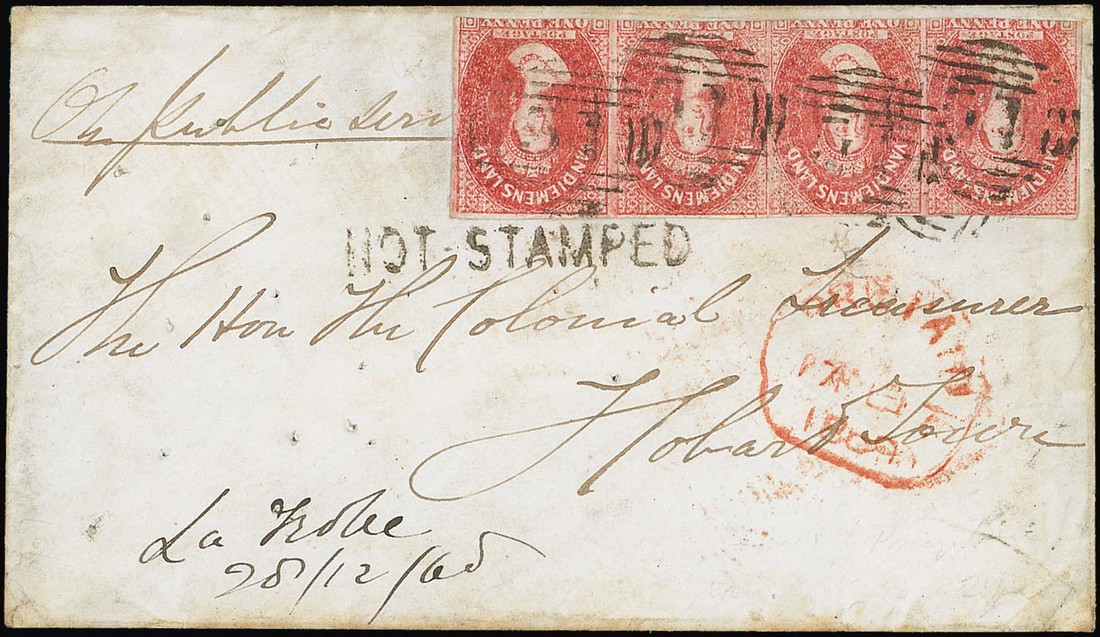 ONE PENNY ONE PENNY ONE PENNY ONE PENNY
POSTAGE POSTAGE POSTAGE POSTAGE
VAN DIEMENS LAND VAN DIEMENS LAND VAN DIEMENS LAND VAN DIEMENS LAND
On public serv
NOT STAMPED
The Hon The Colonial Treasurer
Hobart Town
La Trobe
28/12/60